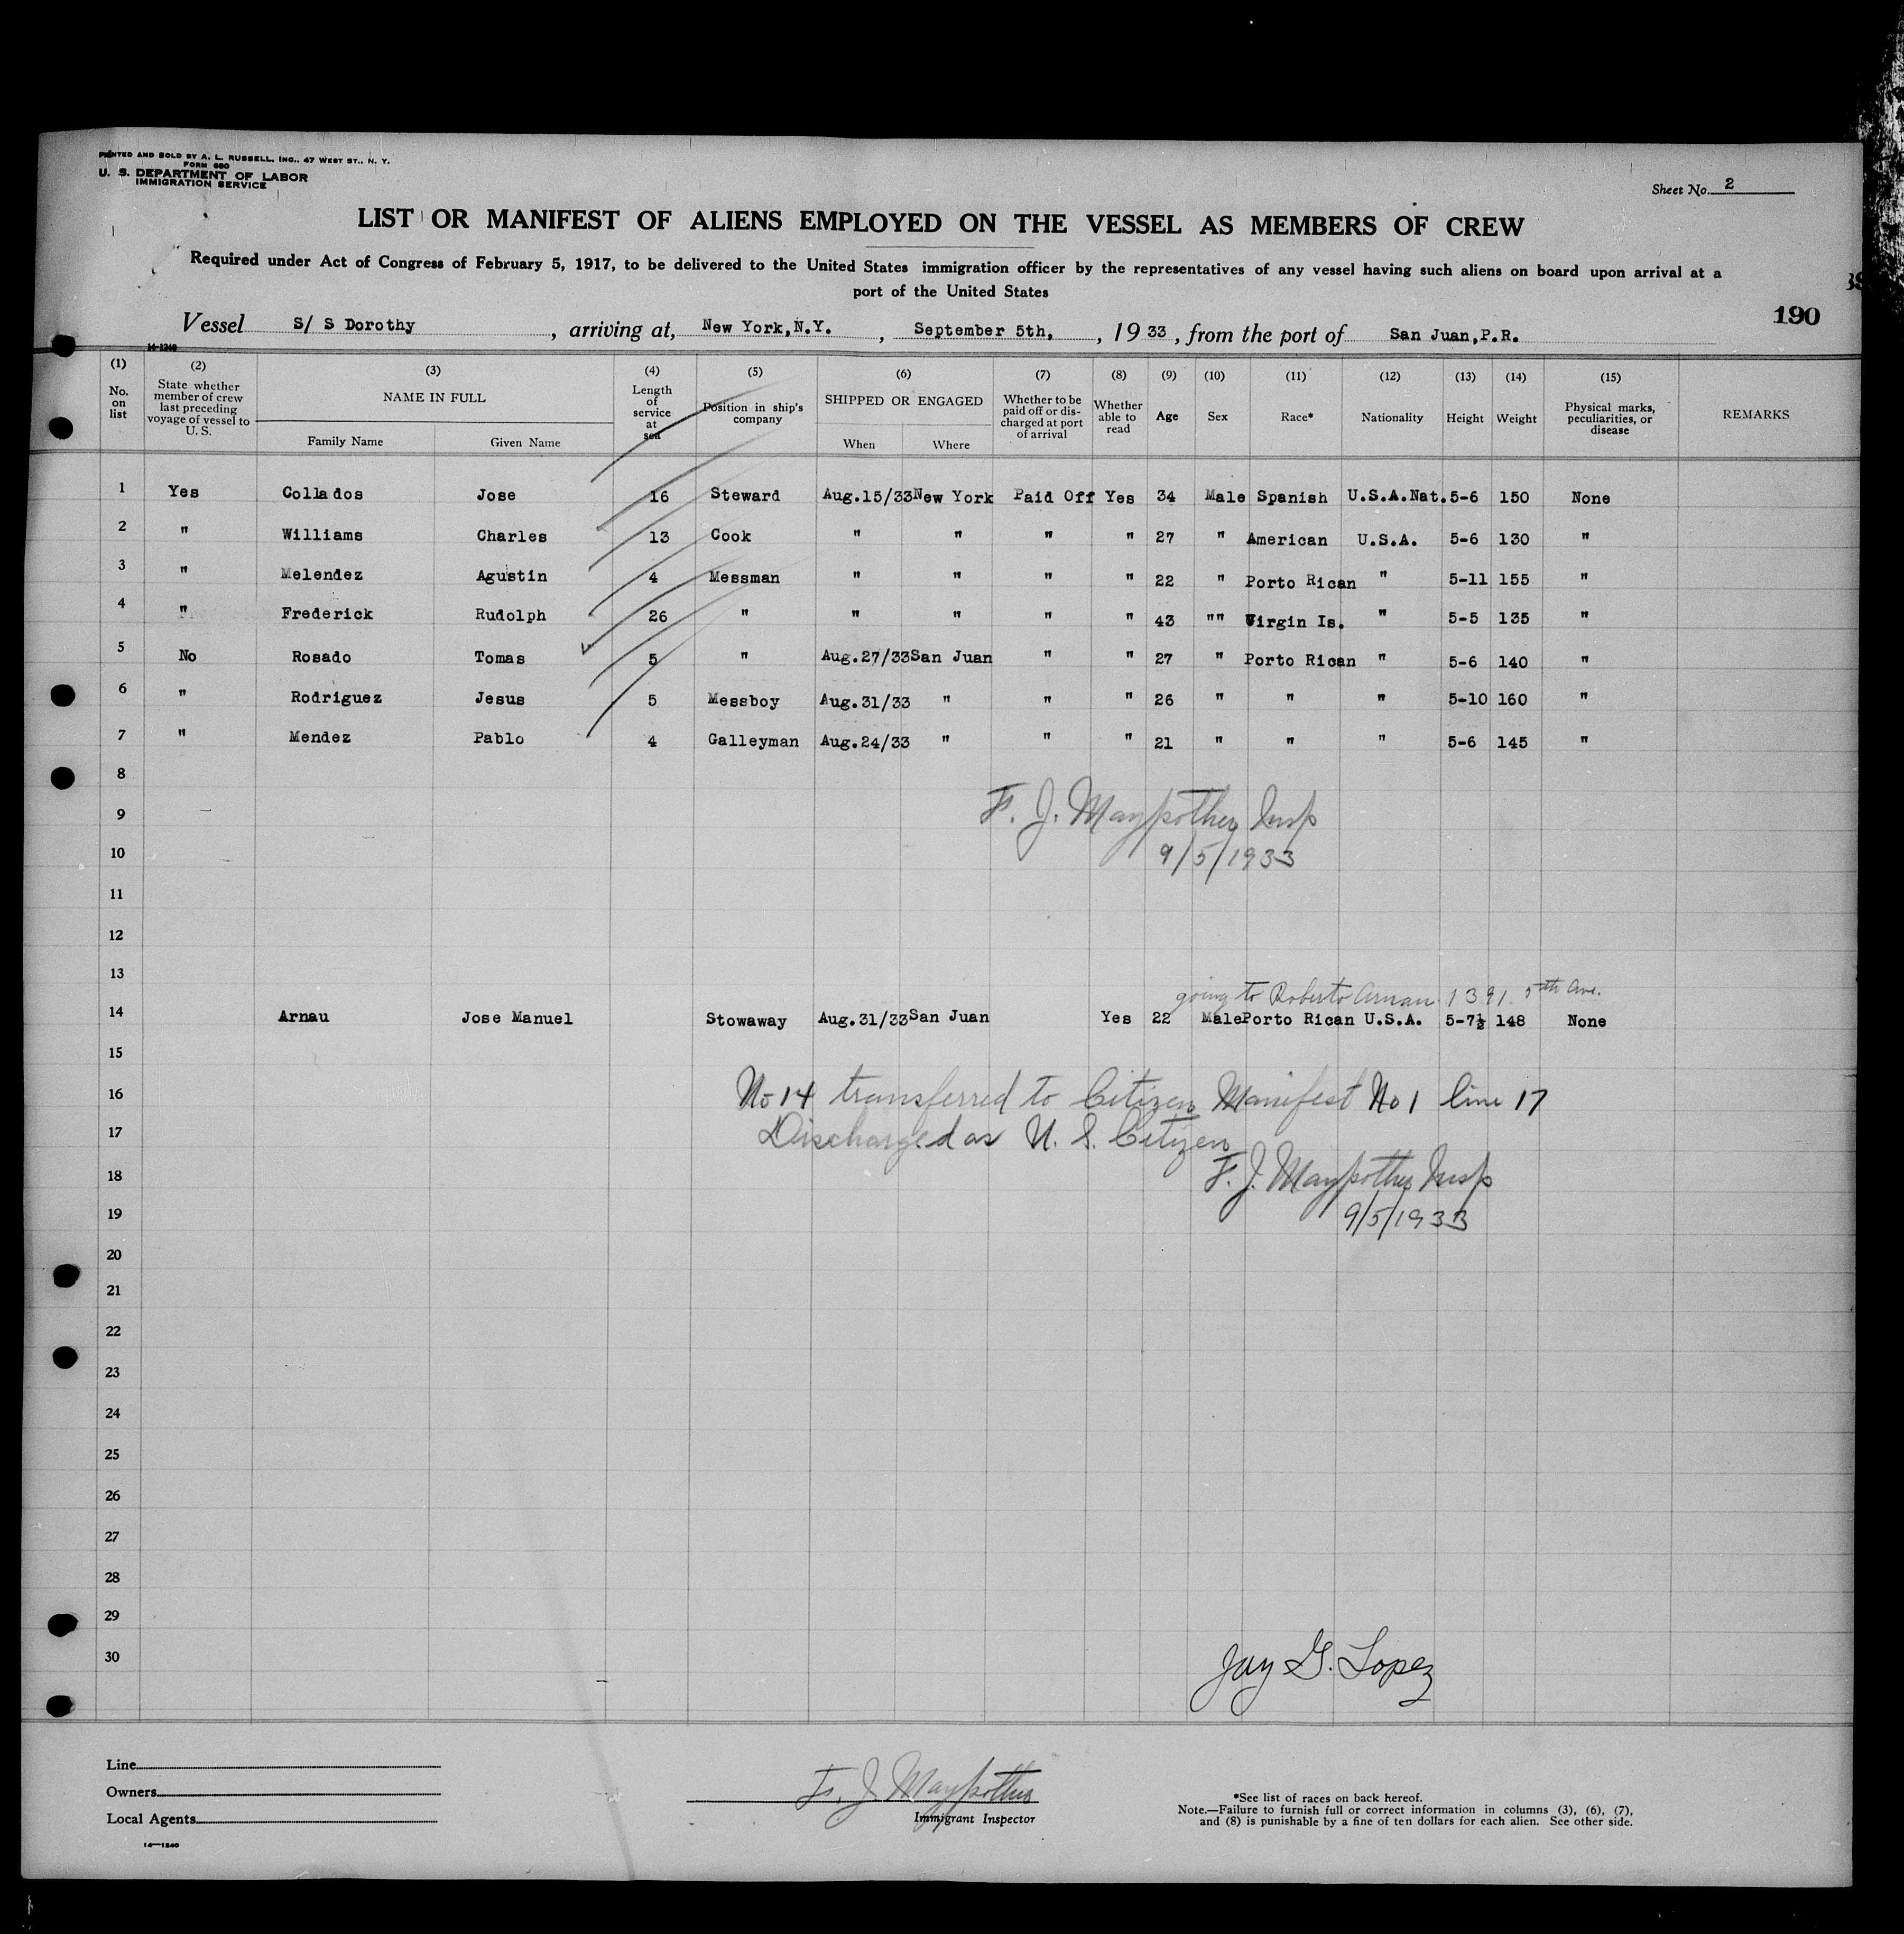 PRINTED AND SOLD BY A. L. RUSSELL, INC., 47 WEST ST., N. Y.
FORM 680
U. S. DEPARTMENT OF LABOR
IMMIGRATION SERVICE
Sheet No. 2
LIST OR MANIFEST OF ALIENS EMPLOYED ON THE VESSEL AS MEMBERS OF CREW
Required under Act of Congress of February 5, 1917, to be delivered to the United States immigration officer by the representatives of any vessel having such aliens on board upon arrival at a
port of the United States
190
Vessel S/ S Dorothy, arriving at, New York,N.Y., September 5th, , 19 33, from the port of San Juan,P.R.
14-1240
(1) (2) (3) (4) (5) (6) (7) (8) (9) (10) (11) (12) (13) (14) (15)
No. on list
State whether member of crew last preceding voyage of vessel to U. S.
NAME IN FULL
Family Name Given Name
Length of service at sea
Position in ship's company
SHIPPED OR ENGAGED
When Where
Whether to be paid off or discharged at port of arrival
Whether able to read
Age Sex Race* Nationality Height Weight
Physical marks, peculiarities, or disease
REMARKS
1 Yes Collados Jose 16 Steward Aug.15/33 New York Paid Off Yes 34 Male Spanish U.S.A.Nat. 5-6 150 None
2 " Williams Charles 13 Cook " " " " 27 " American U.S.A. 5-6 130 "
3 " Melendez Agustin 4 Messman " " " " 22 " Porto Rican " 5-11 155 "
4 " Frederick Rudolph 26 " " " " " 43 "" Virgin Is. " 5-5 135 "
5 No Rosado Tomas 5 " Aug.27/33 San Juan " " 27 " Porto Rican " 5-6 140 "
6 " Rodriguez Jesus 5 Messboy Aug.31/33 " " " 26 " " " 5-10 160 "
7 " Mendez Pablo 4 Galleyman Aug.24/33 " " " 21 " " " 5-6 145 "
8
F. J. Maypother Insp
9
9/5/1933
10
11
12
13
going to Roberto Arnau 1391 5th Ave.
14 Arnau Jose Manuel Stowaway Aug.31/33 San Juan Yes 22 Male Porto Rican U.S.A. 5-7½ 148 None
15
16 No 14 transferred to Citizen Manifest No 1 line 17
17 Discharged as U. S. Citizen
18 F. J. Maypother Insp
19 9/5/1933
20
21
22
23
24
25
26
27
28
29
30
Jay G. Lopez
Line
Owners
Local Agents
14-1240
F. J. Maypother
Immigrant Inspector
*See list of races on back hereof.
Note.—Failure to furnish full or correct information in columns (3), (6), (7),
and (8) is punishable by a fine of ten dollars for each alien. See other side.